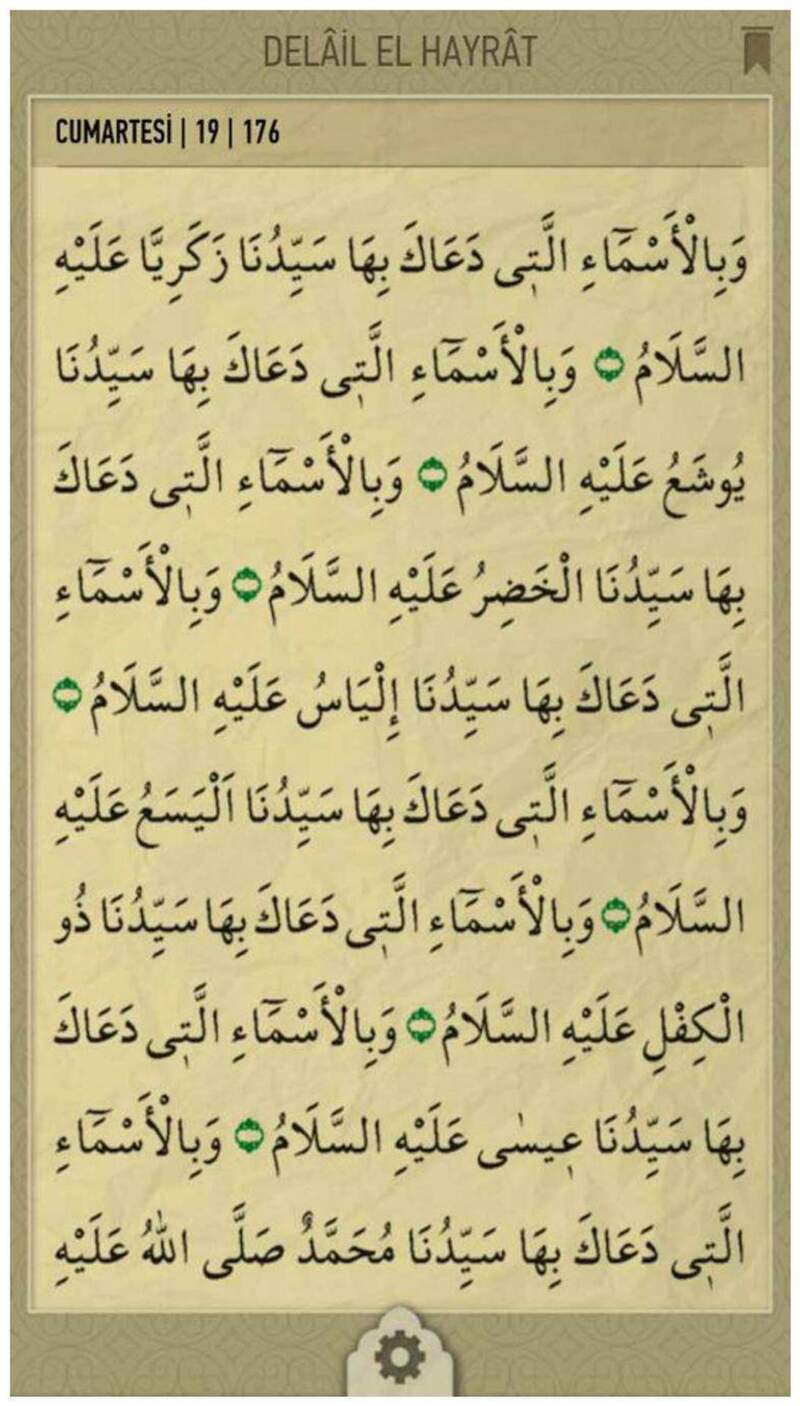 DELÂİL EL HAYRÂT
CUMARTESİ | 19 | 176
وَبِالْأَسْمَٓاءِ الَّتٖى دَعَاكَ بِهَا سَيِّدُنَا زَكَرِيَّا عَلَيْهِ
السَّلَامُ وَبِالْأَسْمَٓاءِ الَّتٖى دَعَاكَ بِهَا سَيِّدُنَا
يُوشَعُ عَلَيْهِ السَّلَامُ وَبِالْأَسْمَٓاءِ الَّتٖى دَعَاكَ
بِهَا سَيِّدُنَا الْخَضِرُ عَلَيْهِ السَّلَامُ وَبِالْأَسْمَٓاءِ
الَّتٖى دَعَاكَ بِهَا سَيِّدُنَا إِلْيَاسُ عَلَيْهِ السَّلَامُ
وَبِالْأَسْمَٓاءِ الَّتٖى دَعَاكَ بِهَا سَيِّدُنَا اَلْيَسَعُ عَلَيْهِ
السَّلَامُ وَبِالْأَسْمَٓاءِ الَّتٖى دَعَاكَ بِهَا سَيِّدُنَا ذُو
الْكِفْلِ عَلَيْهِ السَّلَامُ وَبِالْأَسْمَٓاءِ الَّتٖى دَعَاكَ
بِهَا سَيِّدُنَا عٖيسٰى عَلَيْهِ السَّلَامُ وَبِالْأَسْمَٓاءِ
الَّتٖى دَعَاكَ بِهَا سَيِّدُنَا مُحَمَّدٌ صَلَّى اللهُ عَلَيْهِ